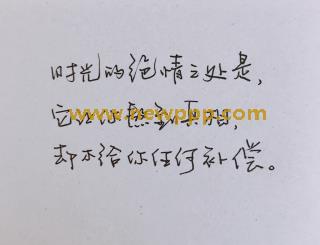 时光的绝情之处是，
它让你熬到真相，
www.newppp.com
却不给你任何补偿。